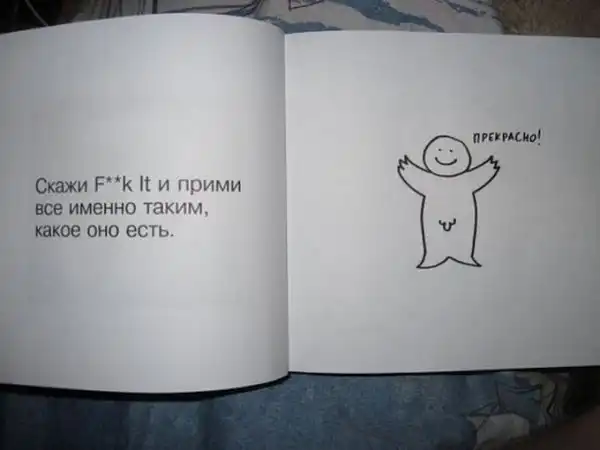 Скажи F**k It и прими
все именно таким,
какое оно есть.
ПРЕКРАСНО!